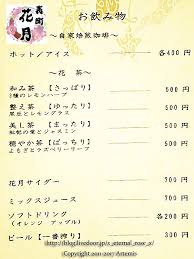 裏町
花月
お飲み物
～自家焙煎珈琲～
ホット/アイス 各400円
～花 茶～
和み茶 【さっぱり】 500円
3種のレモンハーブ
整え茶 【ゆったり】 500円
黒豆とレモングラス
美し茶 【まったり】 500円
枇杷の葉とジャスミン
穏やか茶 【ぽっちり】 500円
よもぎとラズベリーリーフ
花月サイダー 700円
ミックスジュース 700円
ソフトドリンク 各200円
(オレンジ アップル)
ビール 【一番搾り】 300円
Copyright 2011-2017 Artemis